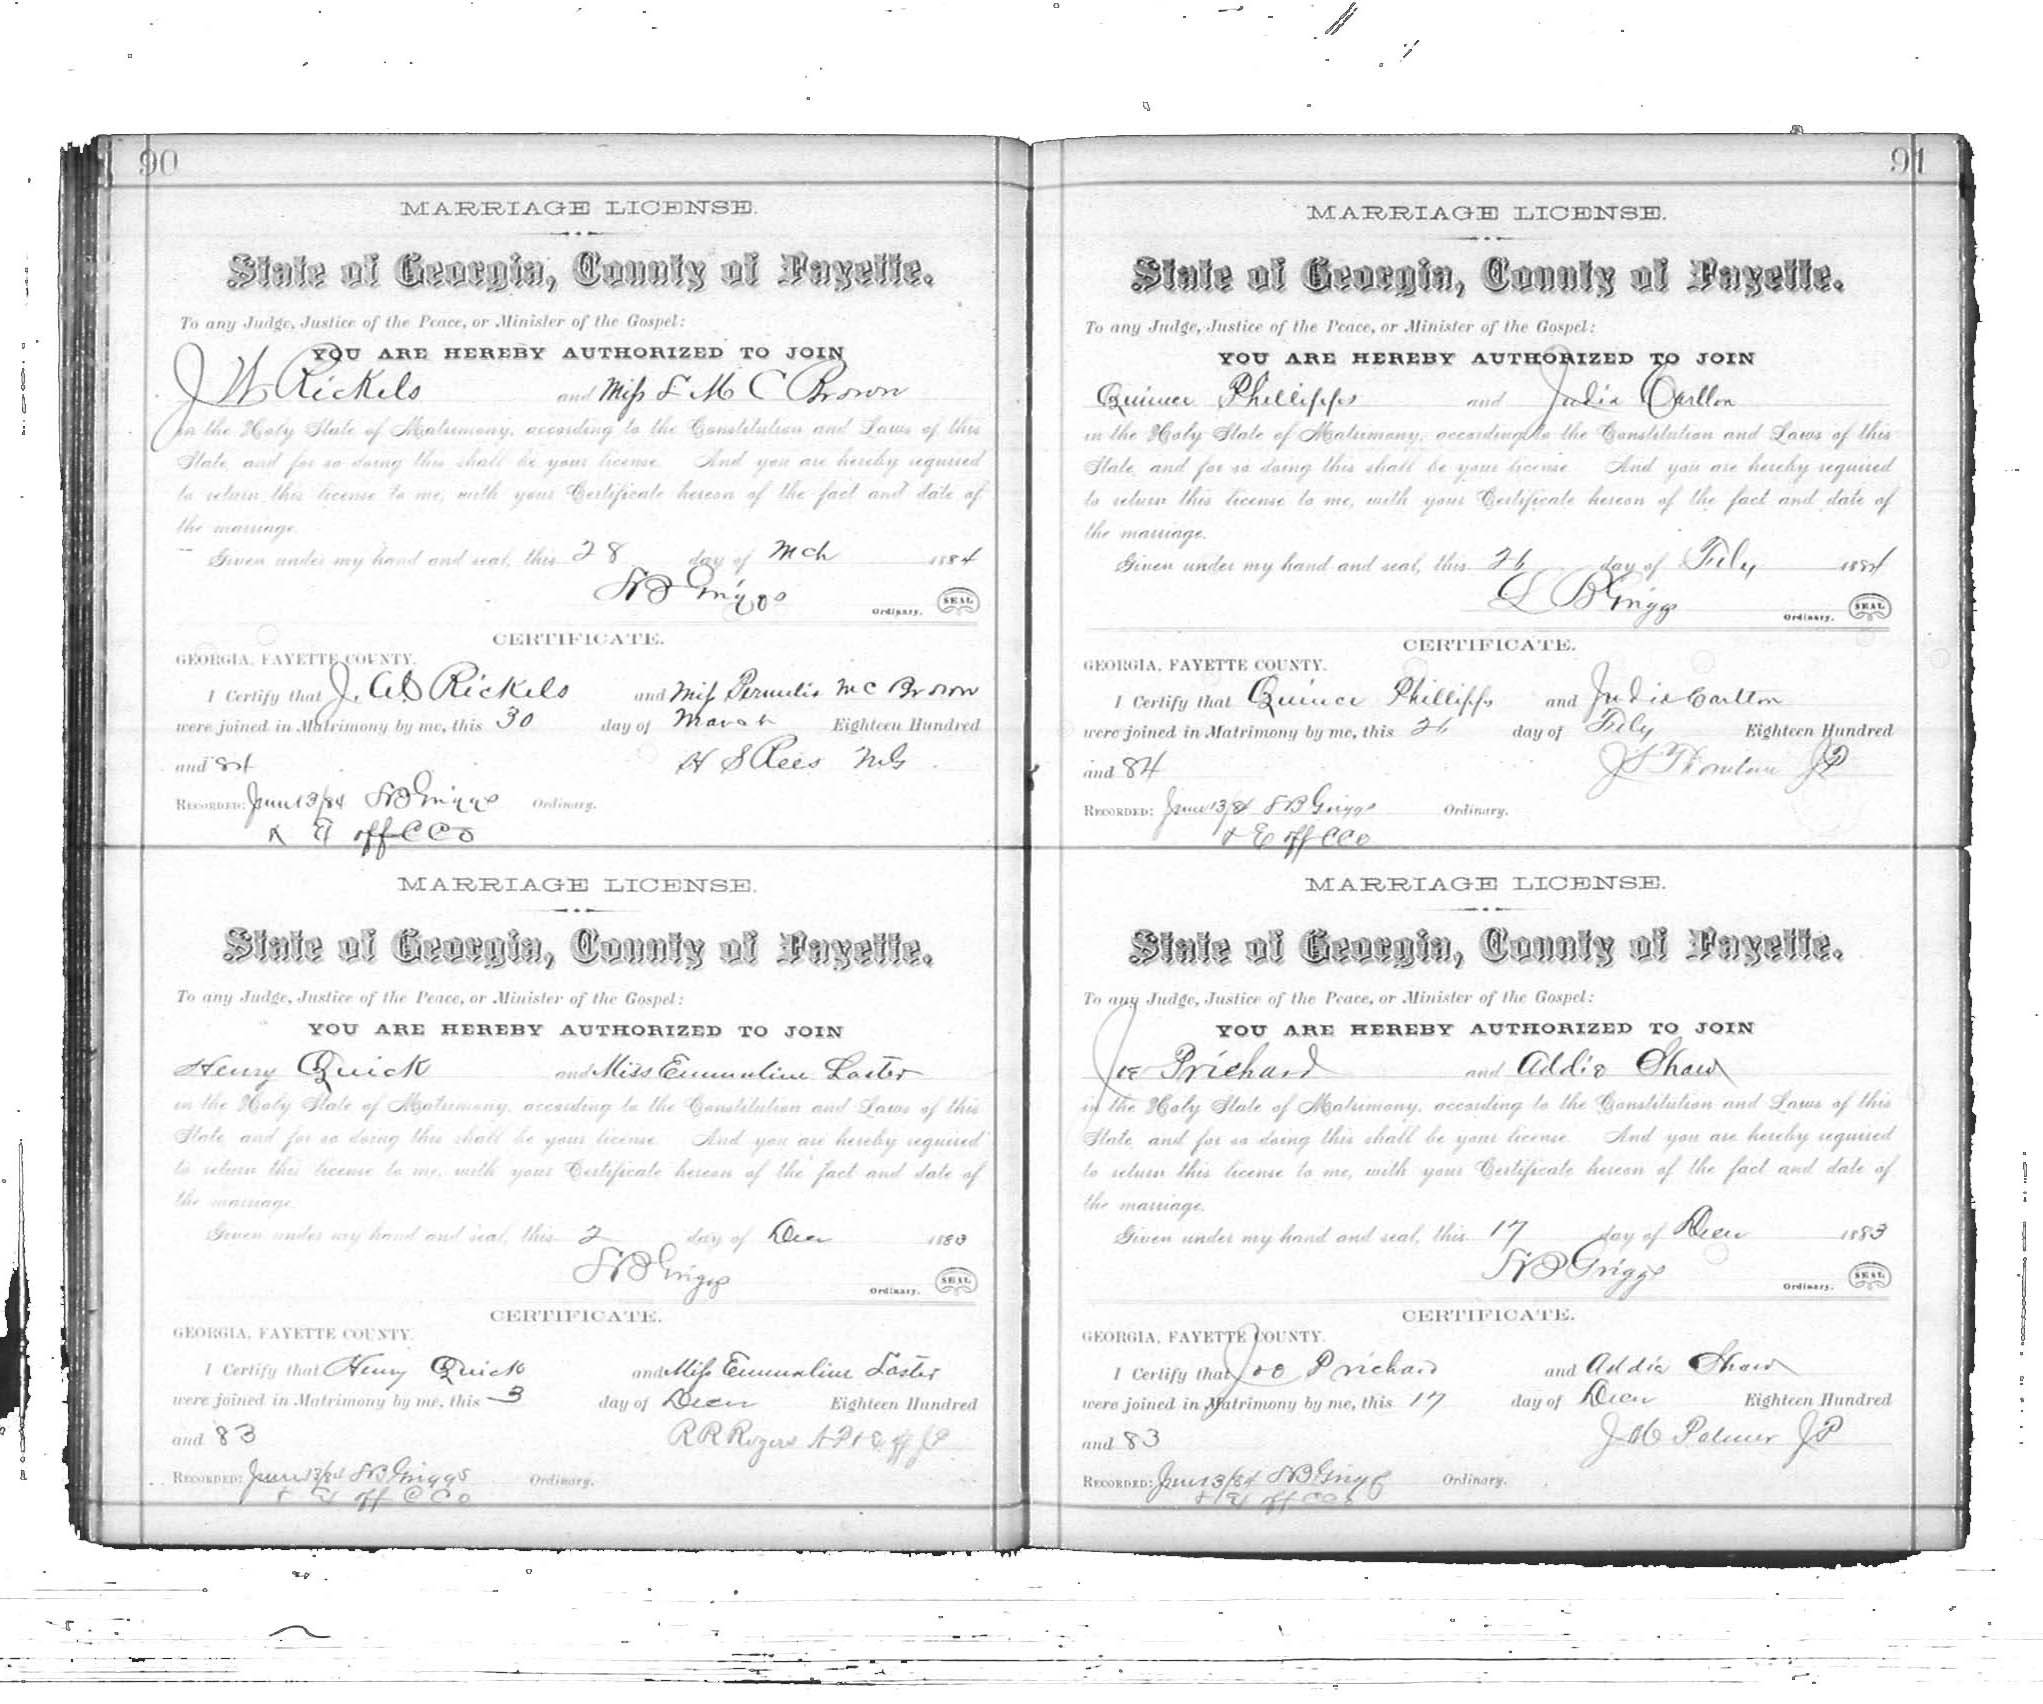 90
MARRIAGE LICENSE.
State of Georgia, County of Fayette.
To any Judge, Justice of the Peace, or Minister of the Gospel:
YOU ARE HEREBY AUTHORIZED TO JOIN
J W Rickels and Miss S M C Brown
in the Holy State of Matrimony, according to the Constitution and Laws of this
State, and for so doing this shall be your license. And you are hereby required
to return this license to me, with your Certificate hereon of the fact and date of
the marriage.
Given under my hand and seal, this 28 day of Mch 1884
S B Griggs
Ordinary. SEAL
CERTIFICATE.
GEORGIA, FAYETTE COUNTY.
I Certify that J. W Rickels and Miss Mc Brown
were joined in Matrimony by me, this 30 day of March Eighteen Hundred
and 84 H S Rees M G
RECORDED: June 13/84 S B Griggs Ordinary.
& E off C C O
MARRIAGE LICENSE.
State of Georgia, County of Fayette.
To any Judge, Justice of the Peace, or Minister of the Gospel:
YOU ARE HEREBY AUTHORIZED TO JOIN
Henry Quick and Miss Emmaline Laster
in the Holy State of Matrimony, according to the Constitution and Laws of this
State, and for so doing this shall be your license. And you are hereby required
to return this license to me, with your Certificate hereon of the fact and date of
the marriage.
Given under my hand and seal, this 2 day of Decr 1883
S B Griggs
Ordinary. SEAL
CERTIFICATE.
GEORGIA, FAYETTE COUNTY.
I Certify that Henry Quick and Miss Emmaline Laster
were joined in Matrimony by me, this 3 day of Decr Eighteen Hundred
and 83 R R Rogers N P & E off J P
RECORDED: June 13/84 S B Griggs Ordinary.
& E off C C O
91
MARRIAGE LICENSE.
State of Georgia, County of Fayette.
To any Judge, Justice of the Peace, or Minister of the Gospel:
YOU ARE HEREBY AUTHORIZED TO JOIN
Quince Phillipps and Julia Carlton
in the Holy State of Matrimony, according to the Constitution and Laws of this
State, and for so doing this shall be your license. And you are hereby required
to return this license to me, with your Certificate hereon of the fact and date of
the marriage.
Given under my hand and seal, this 26 day of Feby 1884
S B Griggs
Ordinary. SEAL
CERTIFICATE.
GEORGIA, FAYETTE COUNTY.
I Certify that Quince Phillipps and Julia Carlton
were joined in Matrimony by me, this 26 day of Feby Eighteen Hundred
and 84 J S Thornton J P
RECORDED: June 13/84 S B Griggs Ordinary.
& E off C C O
MARRIAGE LICENSE.
State of Georgia, County of Fayette.
To any Judge, Justice of the Peace, or Minister of the Gospel:
YOU ARE HEREBY AUTHORIZED TO JOIN
Joe Prichard and Addie Shaw
in the Holy State of Matrimony, according to the Constitution and Laws of this
State, and for so doing this shall be your license. And you are hereby required
to return this license to me, with your Certificate hereon of the fact and date of
the marriage.
Given under my hand and seal, this 17 day of Decr 1883
S B Griggs
Ordinary. SEAL
CERTIFICATE.
GEORGIA, FAYETTE COUNTY.
I Certify that Joe Prichard and Addie Shaw
were joined in Matrimony by me, this 17 day of Decr Eighteen Hundred
and 83 J W Palmer J P
RECORDED: June 13/84 S B Griggs Ordinary.
& E off C C O